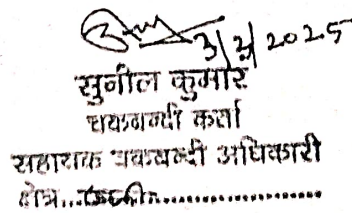 3/2/2025
सुनील कुमार
चकबन्दी कर्ता
सहायक चकबन्दी अधिकारी
क्षेत्र..................